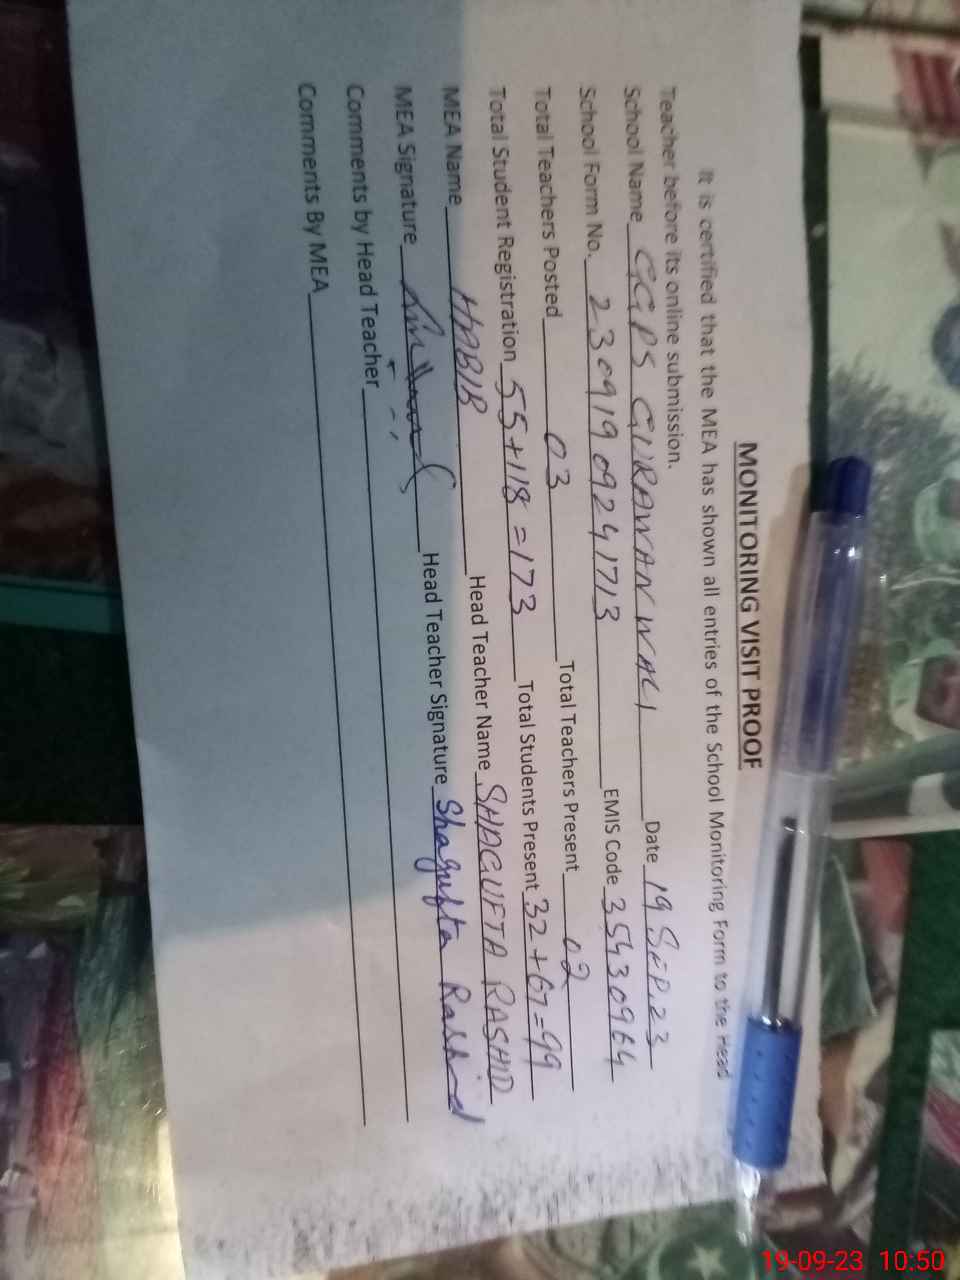 MONITORING VISIT PROOF
It is certified that the MEA has shown all entries of the School Monitoring Form to the Head
Teacher before its online submission.
School Name GGPS GURAWAN WALI Date 19 SEP. 23
School Form No. 23091909241713 EMIS Code 35430964
Total Teachers Posted 03 Total Teachers Present 02
Total Student Registration 55+118=173 Total Students Present 32+67=99
MEA Name HABIB Head Teacher Name SHAGUFTA RASHID
MEA Signature Head Teacher Signature Shagufta Rashid
Comments by Head Teacher
Comments By MEA
19-09-23 10:50